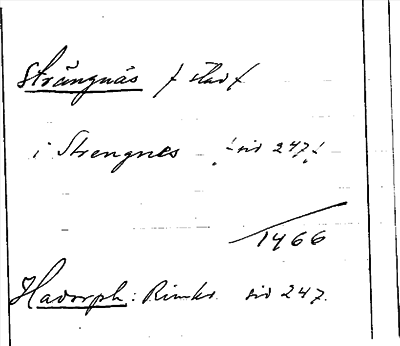 Strängnäs / stad /
i Strengnes - /: sid 247 :/
/1466
Hadorph: Rimkr. sid 247.